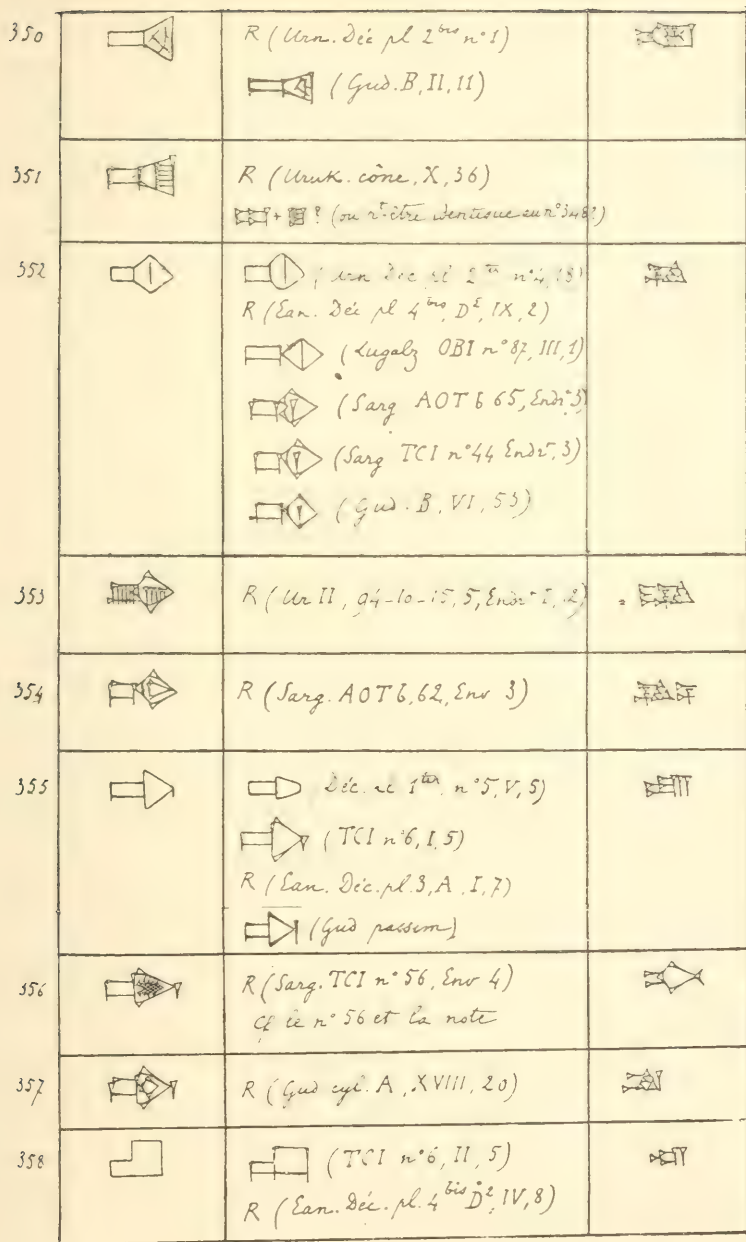 350 R (Urn. Déc pl 2 bis n°1)
(Gud. B, II, 11)
351 R (Uruk. cône, X, 36)
+ ? (ou p^t-être au n° 348?)
352 (Urn Déc pl 2 n°4,
R (Ean. Déc pl 4 bis, D², IX, 2)
(Lugalz OBI n° 87, III, 1)
(Sarg AOT b 65, Endr^t 3)
(Sarg TCI n° 44 Endr^t, 3)
(Gud. B, VI, 53)
353 R (Ur II, 94-10-15, 5, Endr^t I, 2)
354 R (Sarg. AOT b, 62, Env 3)
355 Déc. pl 1 ter n° 5, V, 5)
(TCI n° 6, I, 5)
R (Ean. Déc. pl. 3, A, I, 7)
(Gud passim)
356 R (Sarg. TCI n° 56, Env 4)
Cf le n° 56 et la note
357 R (Gud cyl. A, XVIII, 20)
358 (TCI n° 6, II, 5)
R (Ean. Déc. pl. 4 bis D², IV, 8)